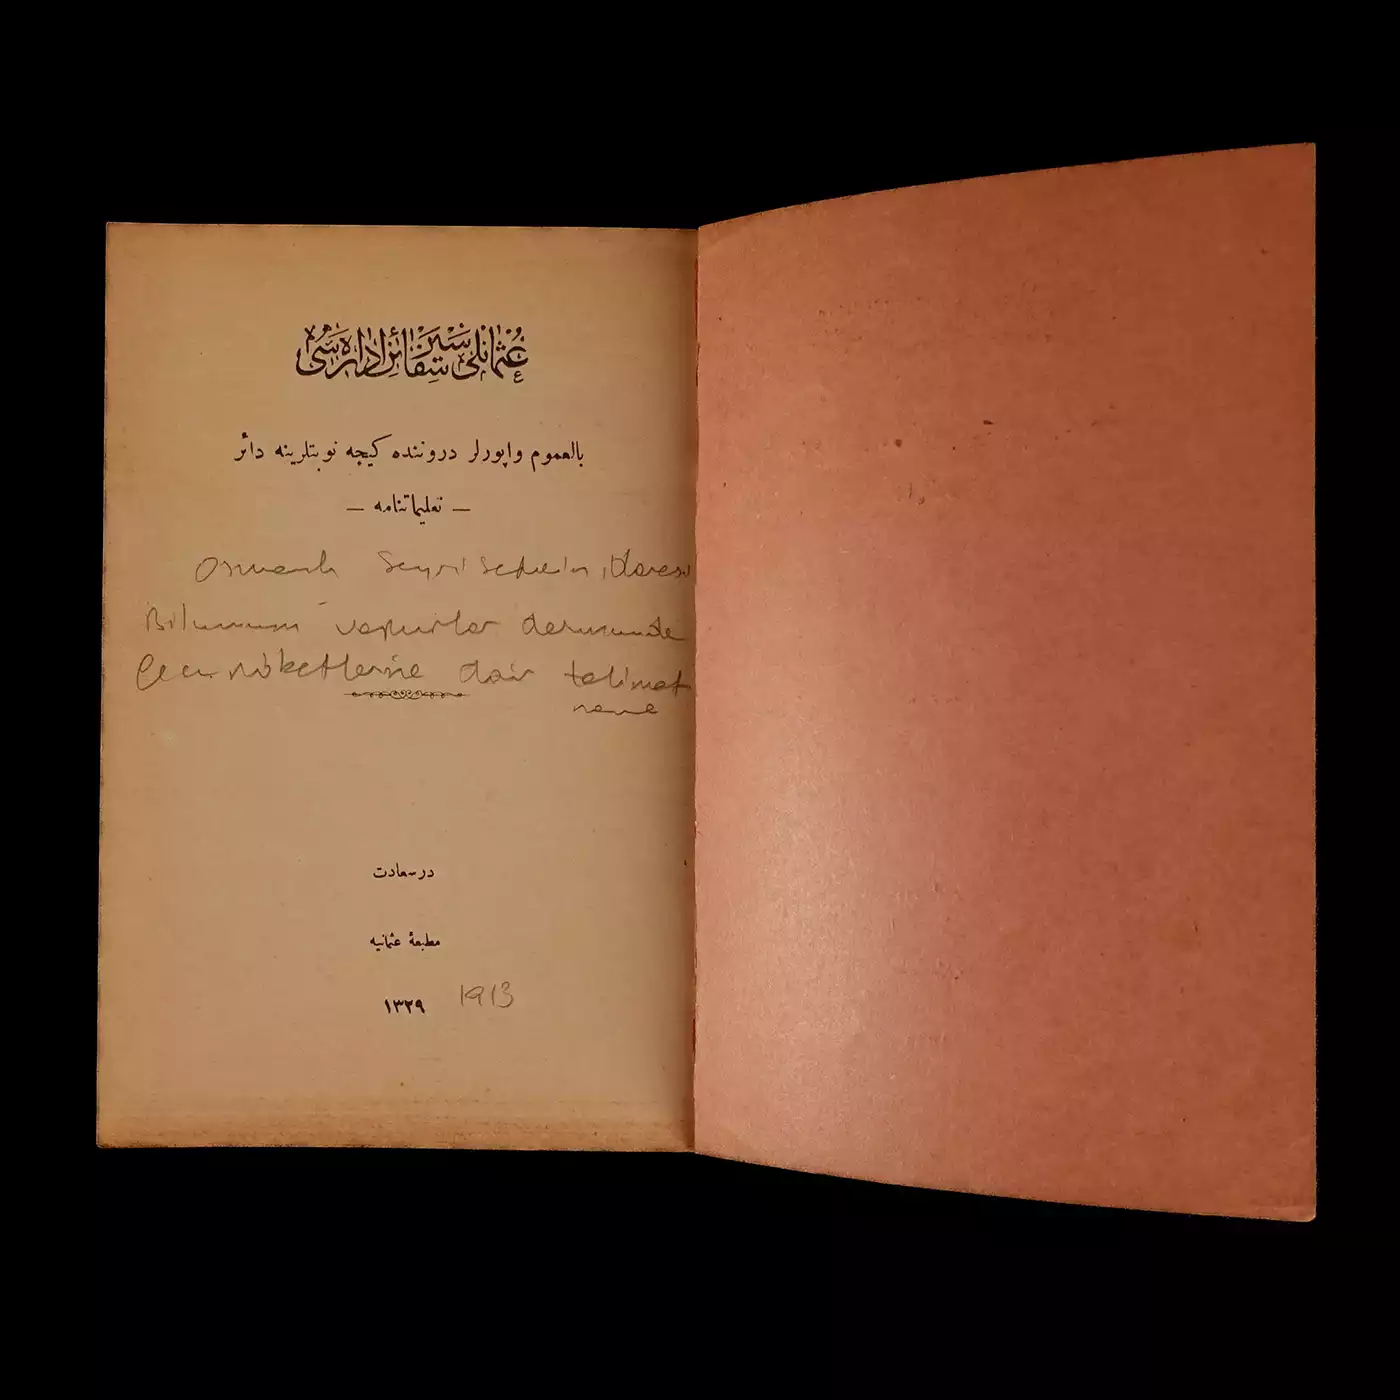 عثمانلی سیر سفائن اداره‌سی
بالعموم واپورلر دروننده کیجه نوبتلرینه دائر
— تعلیماتنامه —
Osmanlı Seyri Sefain idaresi
Bilumum vapurlar derununde
Gece nöbetlerine dair talimat
name
در سعادت
مطبعهٔ عثمانیه
١٣٢٩ 1913